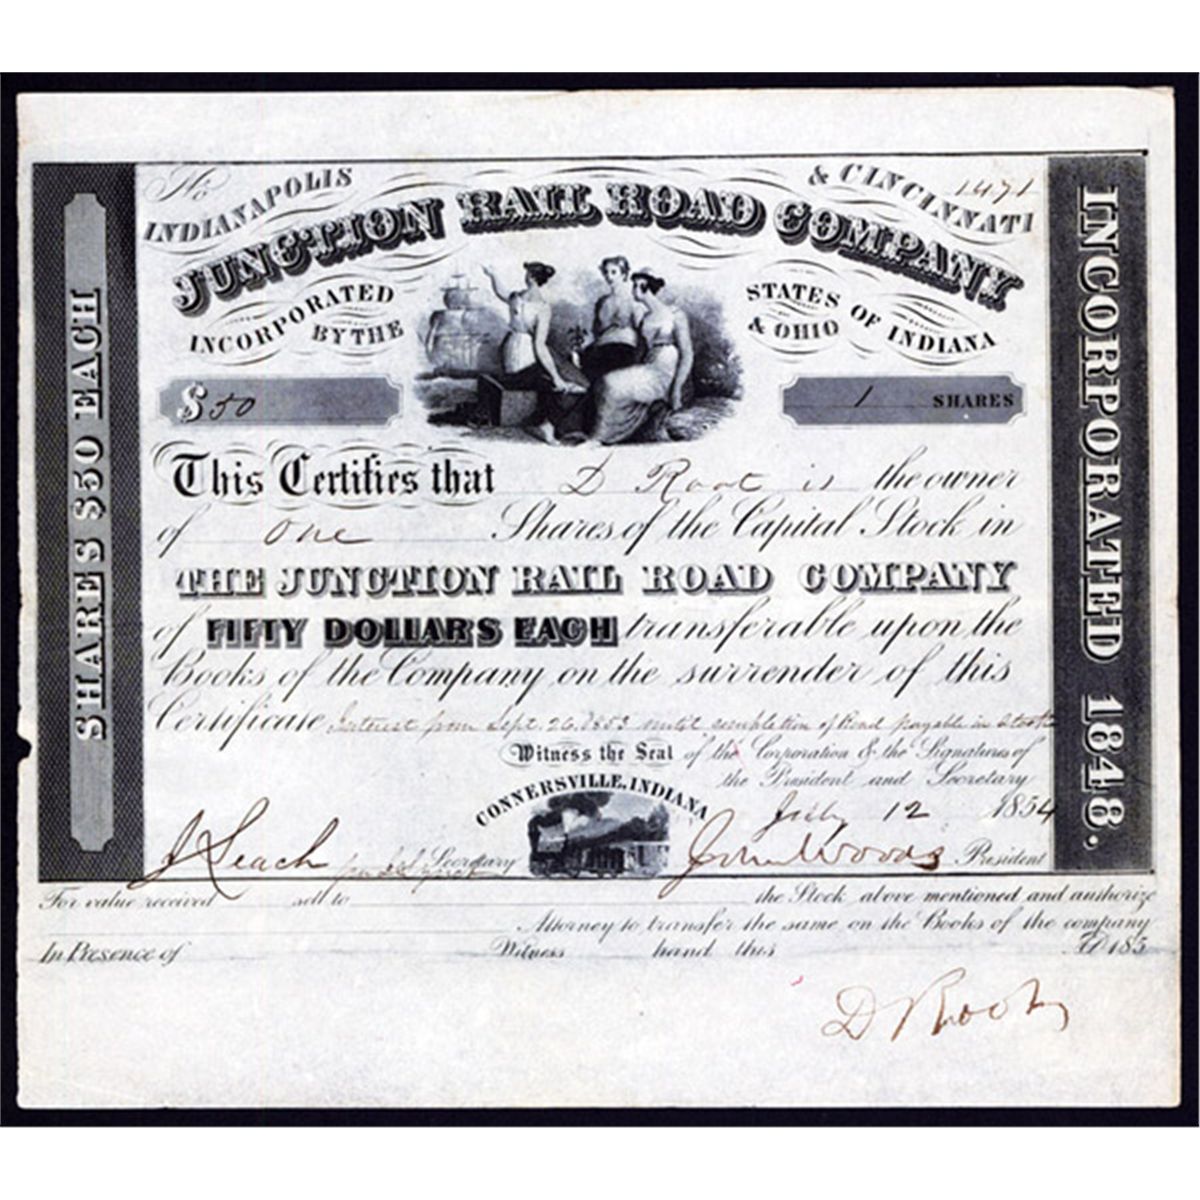 No 1471
INDIANAPOLIS & CINCINNATI
JUNCTION RAIL ROAD COMPANY
INCORPORATED BY THE STATES OF INDIANA & OHIO
SHARES $50 EACH
INCORPORATED 1848.
$50
1 SHARES
This Certifies that D Root is the owner
of One Shares of the Capital Stock in
THE JUNCTION RAIL ROAD COMPANY
of FIFTY DOLLARS EACH transferable upon the
Books of the Company on the surrender of this
Certificate Interest from Sept. 26, 1853 until completion of Road payable in Stock
Witness the Seal of the Corporation & the Signatures of
the President and Secretary
CONNERSVILLE, INDIANA
July 12 1854
J Leach Secretary
John Woods President
For value received sell to the Stock above mentioned and authorize
Attorney to transfer the same on the Books of the company
In Presence of Witness hand this AD 185
D Root